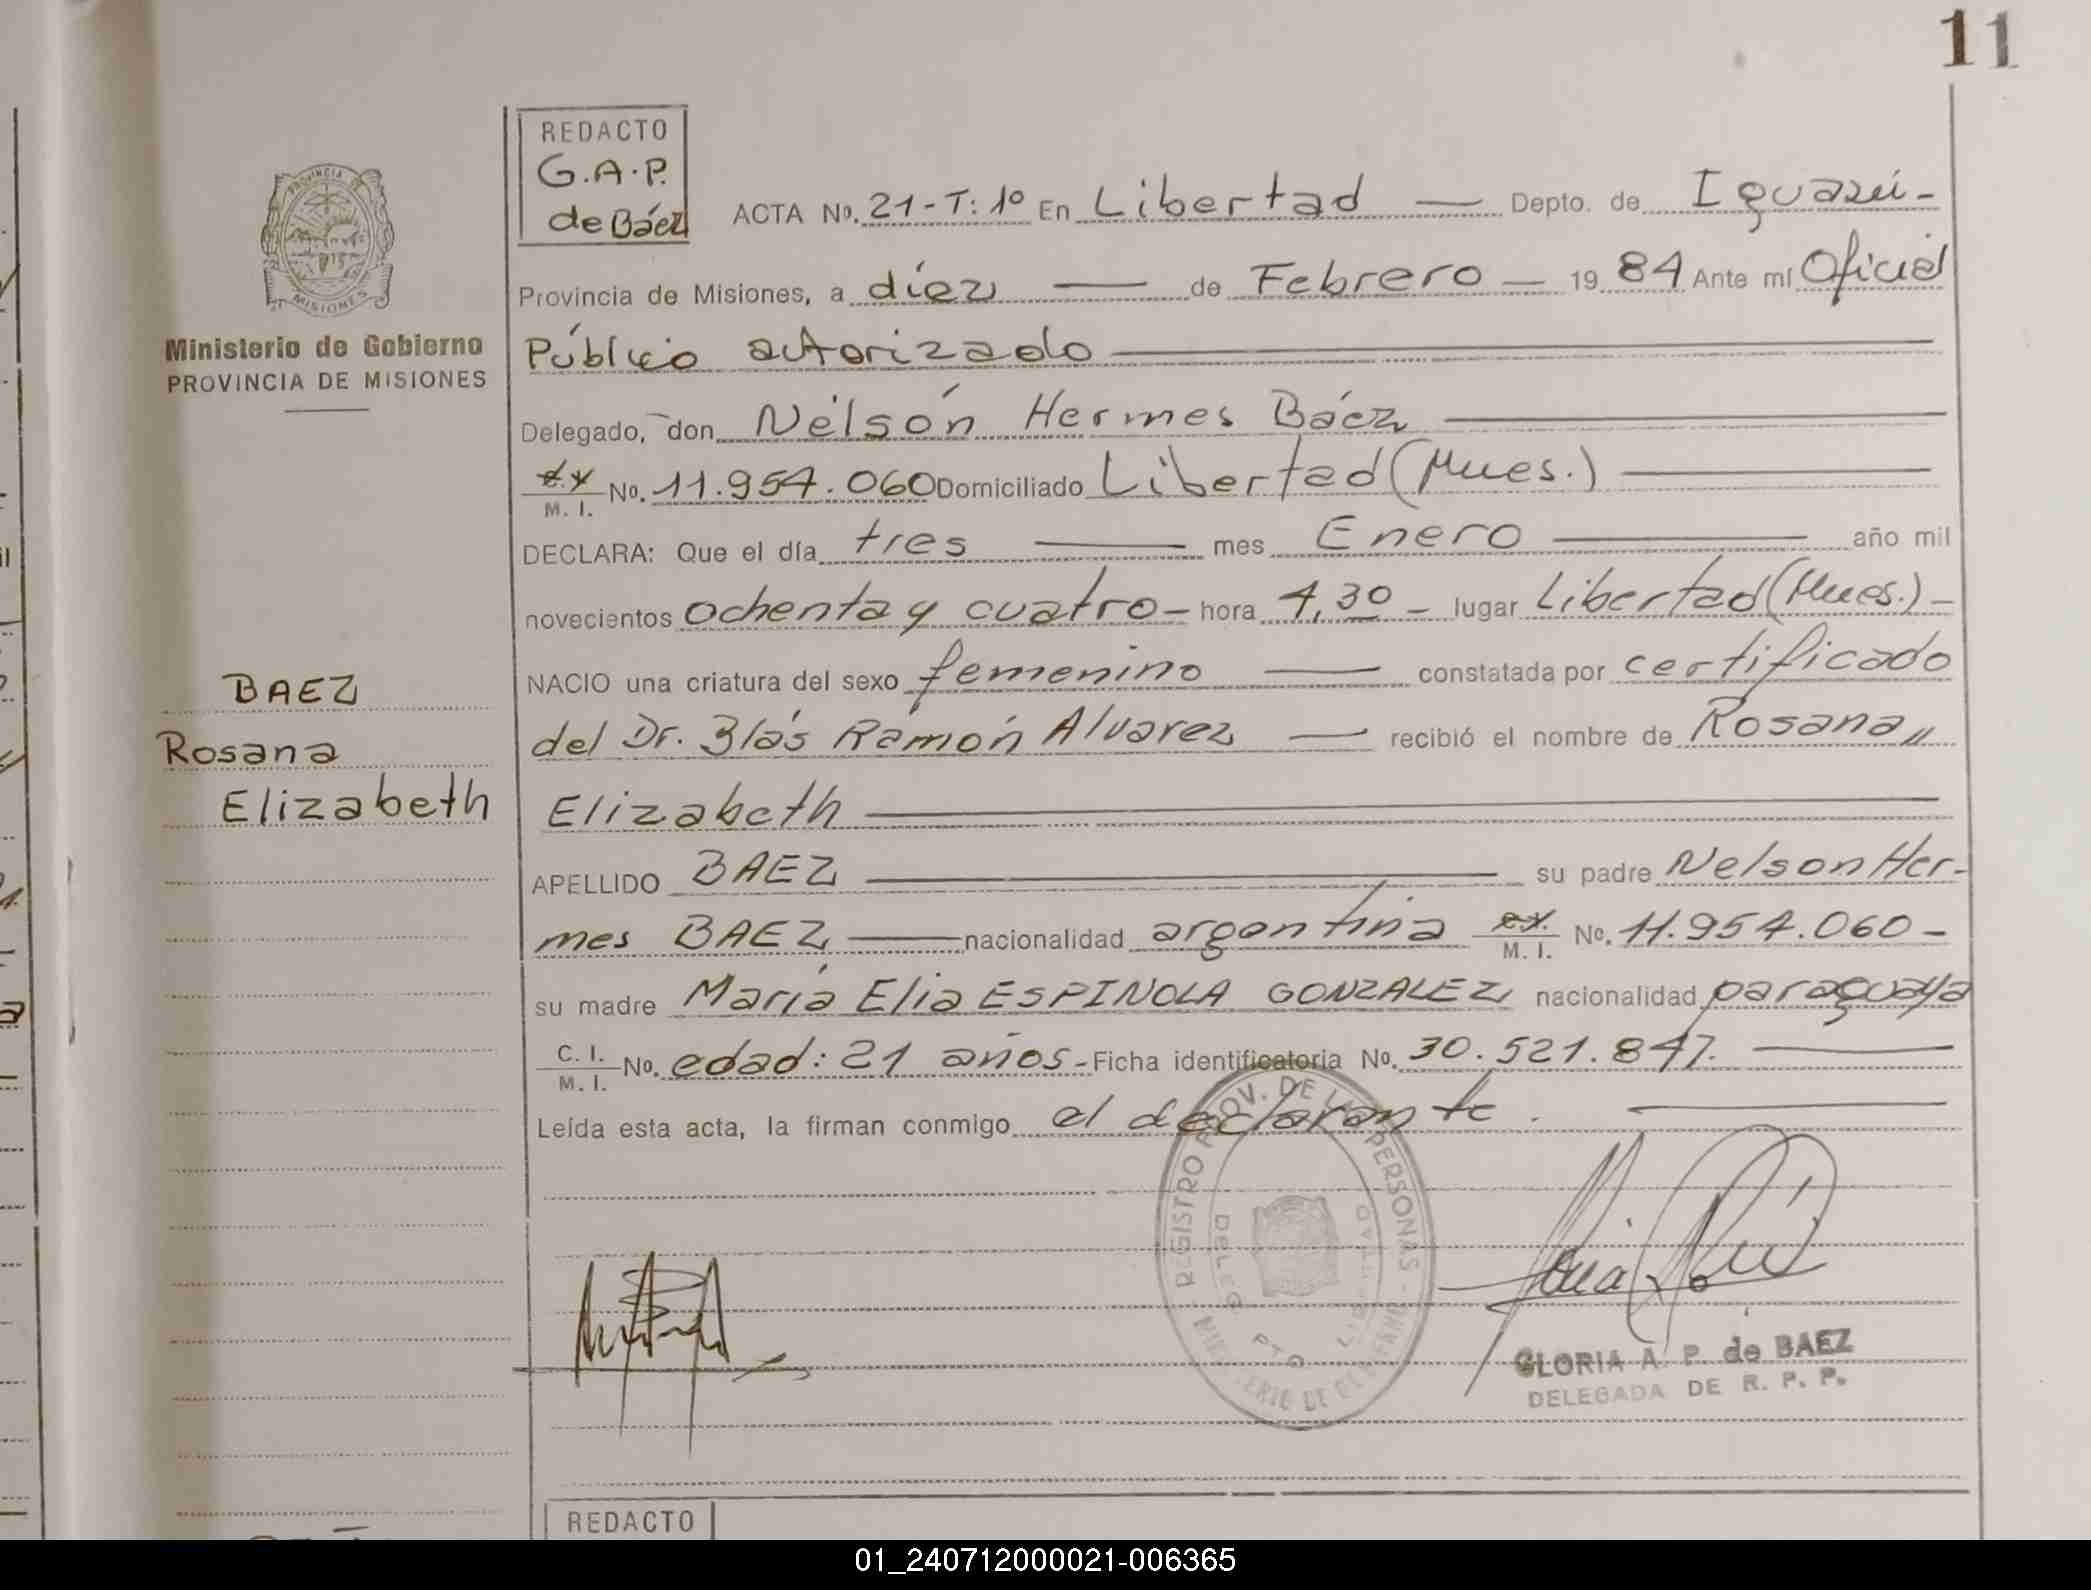 11
REDACTO
G.A.P.
de Báez
ACTA No. 21-T:1º En Libertad — Depto. de Iguazú-
Provincia de Misiones, a diez — de Febrero — 1984 Ante mí Oficial
Público autorizado
Ministerio de Gobierno
PROVINCIA DE MISIONES
Delegado, don Nélsón Hermes Báez
M. I. No. 11.954.060 Domiciliado Libertad (Mnes.)
DECLARA: Que el día tres — mes Enero — año mil
novecientos ochenta y cuatro - hora 4,30 - lugar Libertad (Mnes.) -
NACIO una criatura del sexo femenino — constatada por certificado
del Dr. Blás Ramón Alvarez — recibió el nombre de Rosana,,
Elizabeth
BAEZ
Rosana
Elizabeth
APELLIDO BAEZ — su padre Nelson Her-
mes BAEZ — nacionalidad argentina M. I. No. 11.954.060 -
su madre María Elia ESPINOLA GONZALEZ nacionalidad paraguaya
C. I. M. I. No. edad: 21 años - Ficha identificatoria No. 30.521.847.
Leída esta acta, la firman conmigo el declarante.
REGISTRO PROV. DE LAS PERSONAS - MINISTERIO DE GOBIERNO
GLORIA A. P. de BAEZ
DELEGADA DE R. P. P.
REDACTO
01_240712000021-006365